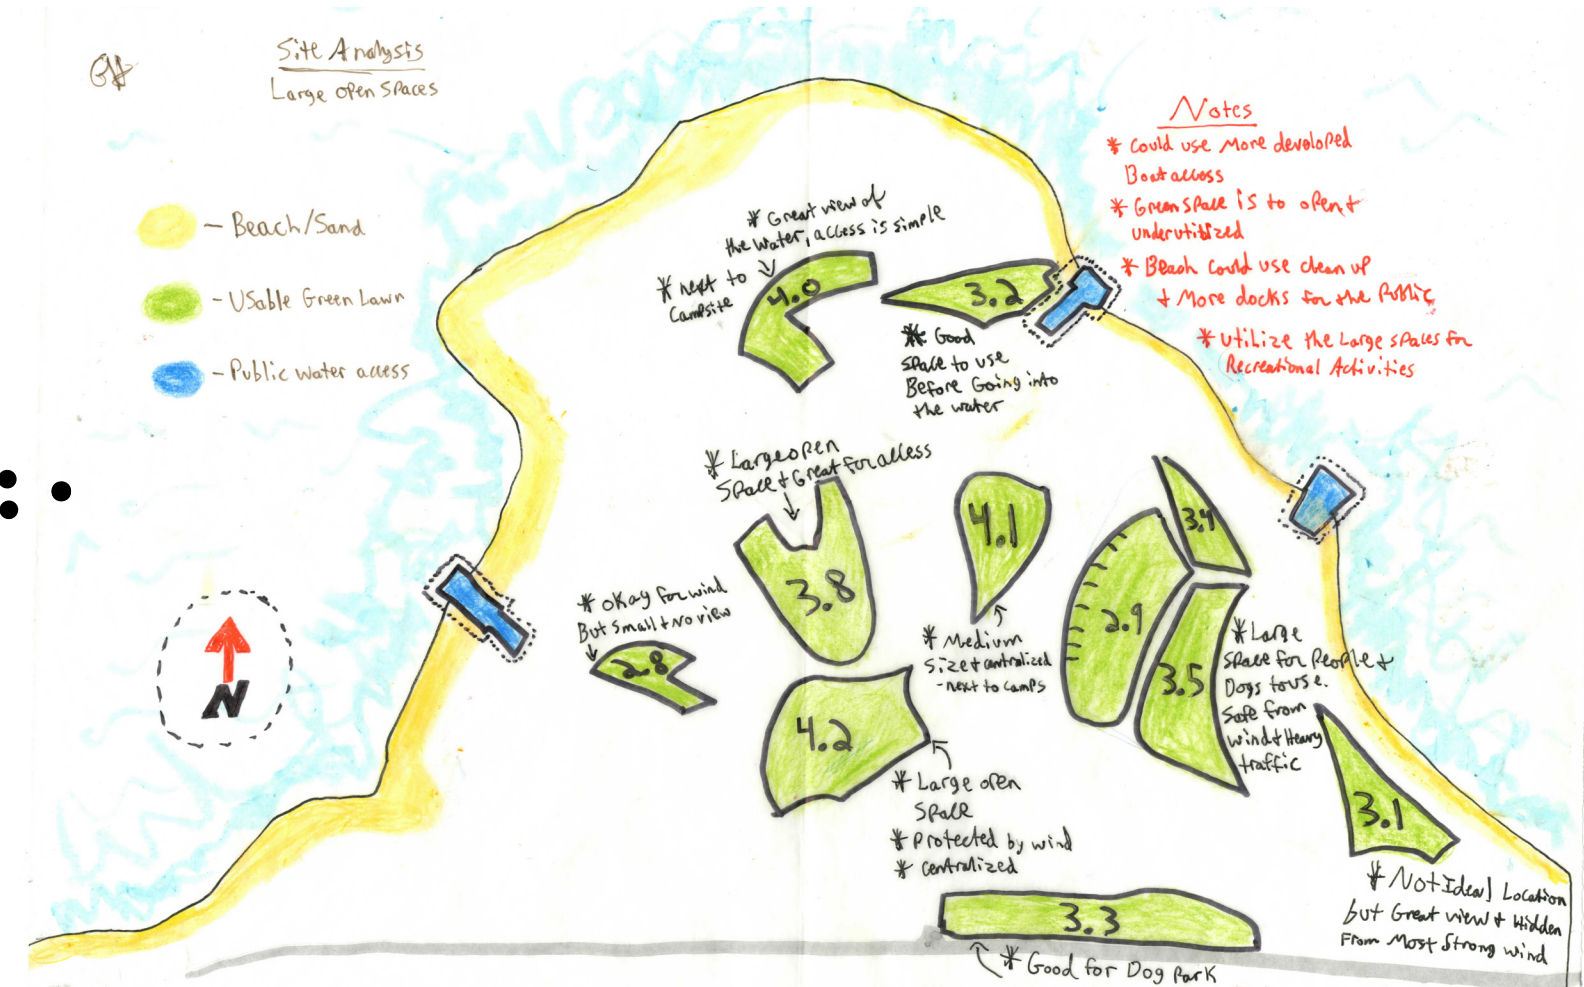 GH
Site Analysis
Large open spaces
- Beach/Sand
- Usable Green Lawn
- Public water access
N
Notes
* Could use More developed
Boat access
* Green space is to open &
underutilized
* Beach could use clean up
& More docks for the Public
* Utilize the Large spaces for
Recreational Activities
* Great view of
the water, access is simple
* next to
Campsite
4.0
3.2
* Good
space to use
Before Going into
the water
* Large open
Space & Great for access
3.8
4.1
* Medium
Size & centralized
- next to camps
3.4
2.9
3.5
* Large
space for People &
Dogs to use.
Safe from
wind & Heavy
traffic
* okay for wind
But small & No view
2.8
4.2
* Large open
Space
* Protected by wind
* Centralized
3.1
* Not Ideal Location
but Great view & Hidden
From Most Strong wind
3.3
* Good for Dog Park